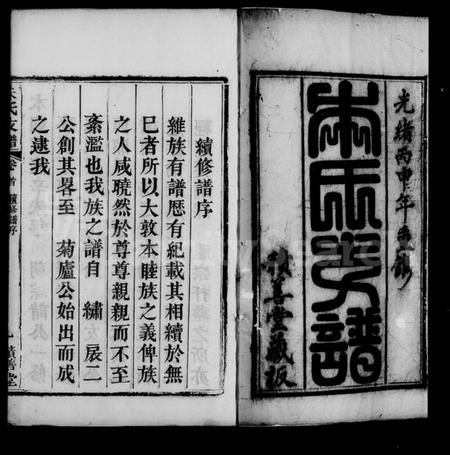 光緒丙申年重鐫
朱氏支譜
積善堂藏板
續修譜序
維族有譜歷有紀載其相續於無
已者所以大敦本睦族之義俾族
之人咸曉然於尊尊親親而不至
紊濫也我族之譜自 繡 扆二
公創其畧至 菊廬公始出而成
之逮我
朱氏支譜 卷首 續修譜序 積善堂